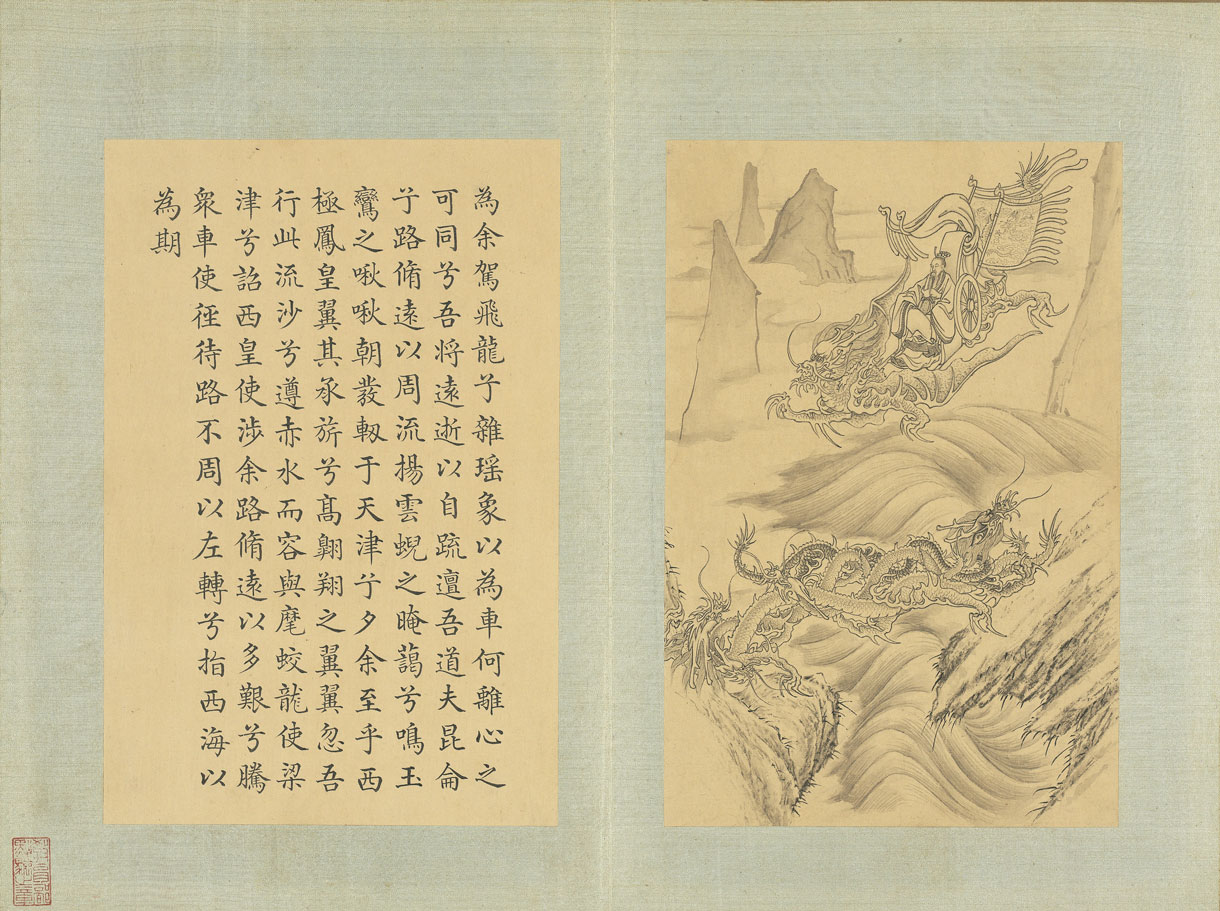 為余駕飛龍兮雜瑶象以為車何離心之
可同兮吾将遠逝以自疏邅吾道夫昆侖
兮路脩遠以周流揚雲蜺之晻藹兮鳴玉
鸞之啾啾朝發軔于天津兮夕余至乎西
極鳳皇翼其承旂兮髙翺翔之翼翼忽吾
行此流沙兮遵赤水而容與麾蛟龍使梁
津兮詔西皇使涉余路脩遠以多艱兮騰
衆車使徑待路不周以左轉兮指西海以
為期